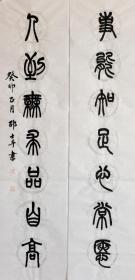 事能知足心常愜
人到無求品自高
癸卯 月 書